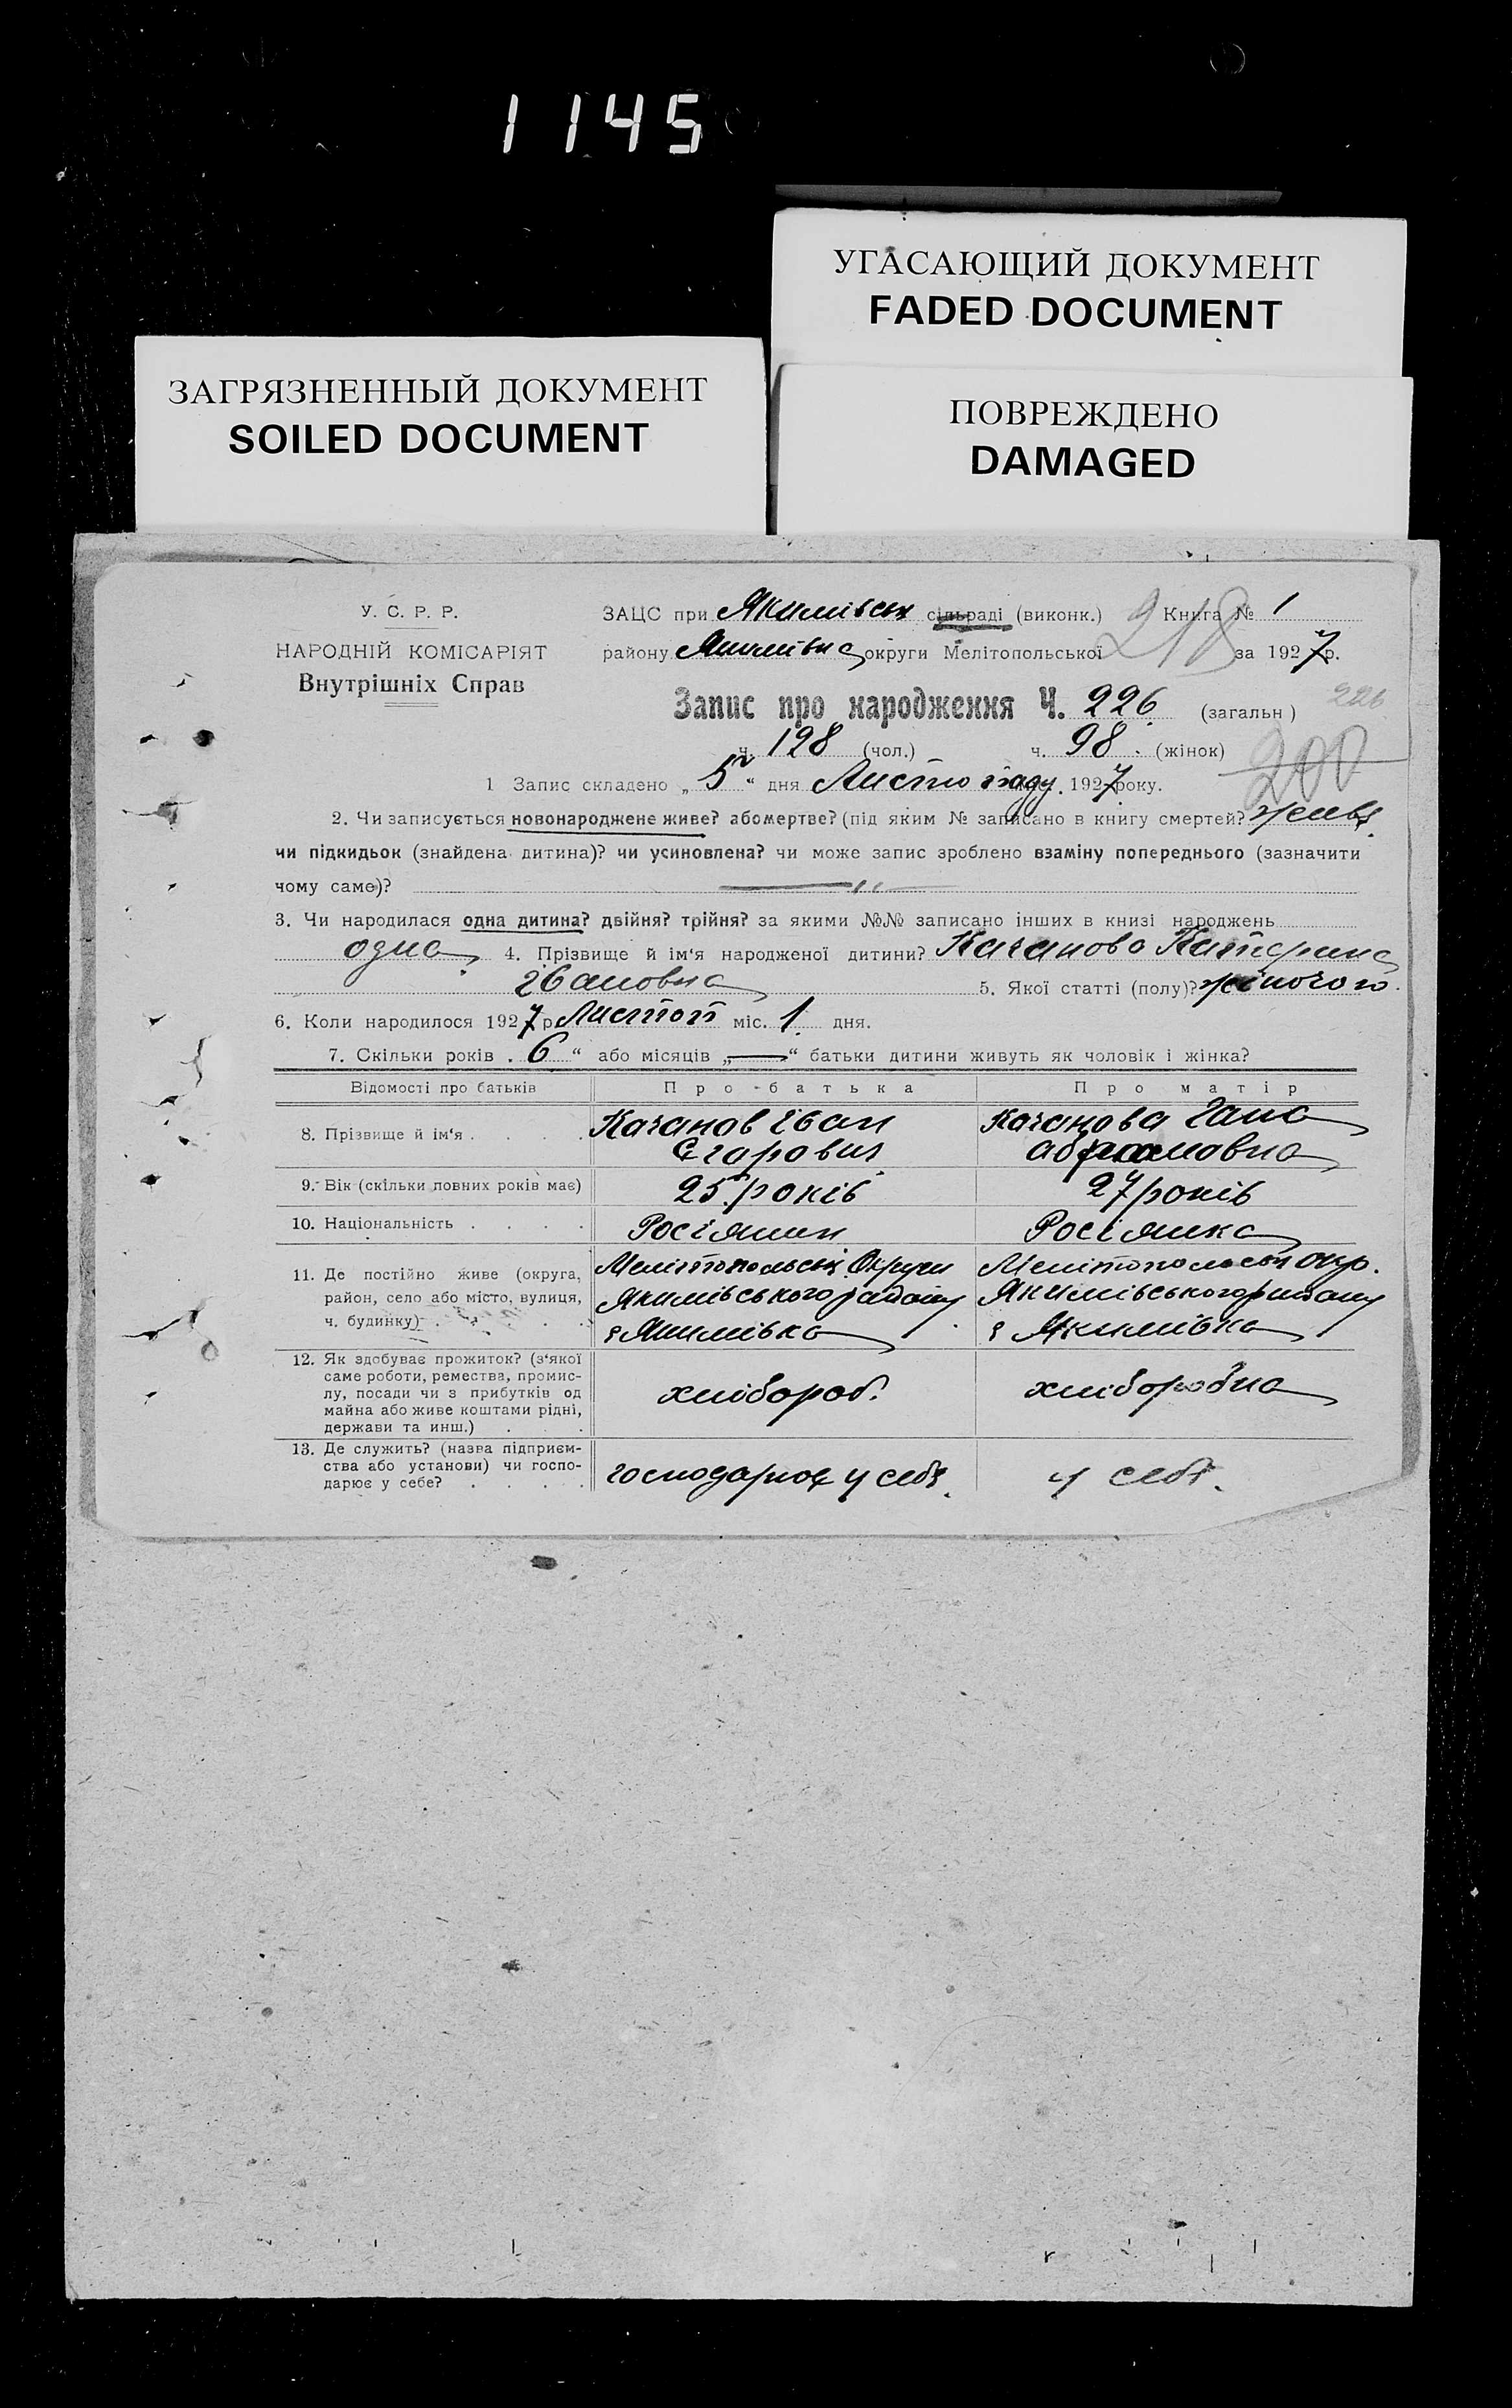 1145
УГАСАЮЩИЙ ДОКУМЕНТ
FADED DOCUMENT
ЗАГРЯЗНЕННЫЙ ДОКУМЕНТ
SOILED DOCUMENT
ПОВРЕЖДЕНО
DAMAGED
У. С. Р. Р.
НАРОДНІЙ КОМІСАРІЯТ
Внутрішніх Справ
ЗАЦС при Якимівськ сільраді (виконк.) 218 Книга № 1
району Якимівка округи Мелітопольської за 1927 р.
Запис про народження Ч. 226 (загальн) 226
ч. 128 (чол.) ч. 98 (жінок) 200
1 Запис складено „ 5 “ дня Листопаду 1927 року.
2. Чи записується новонароджене живе? або мертве? (під яким № записано в книгу смертей? живе
чи підкидьок (знайдена дитина)? чи усиновлена? чи може запис зроблено взаміну попереднього (зазначити
чому саме)? — „ —
3. Чи народилася одна дитина? двійня? трійня? за якими №№ записано інших в книзі народжень
одна 4. Прізвище й ім‘я народженої дитини? Качанова Катерина
Івановна 5. Якої статті (полу)? жіночого
6. Коли народилося 1927 р Листоп міс. 1 дня.
7. Скільки років „ 6 “ або місяців „ — “ батьки дитини живуть як чоловік і жінка?
Відомості про батьків Про батька Про матір
8. Прізвище й ім‘я Качанов Іван Качанова Гана
Єгорович Абрамовна
9. Вік (скільки повних років має) 25 років 27 років
10. Національність Росіянин Росіянка
11. Де постійно живе (округа, район, село або місто, вулиця, ч. будинку)
Мелітопольськ Округи Мелітопольськ окр.
Якимівського району Якимівського району
с Якимівка с Якимівка
12. Як здобуває прожиток? (з‘якої
саме роботи, ремества, промис-
лу, посади чи з прибутків од
майна або живе коштами рідні,
держави та инш.)
хлібороб. хліборобка
13. Де служить? (назва підприєм-
ства або установи) чи госпо-
дарює у себе?
господарює у себе. у себе.